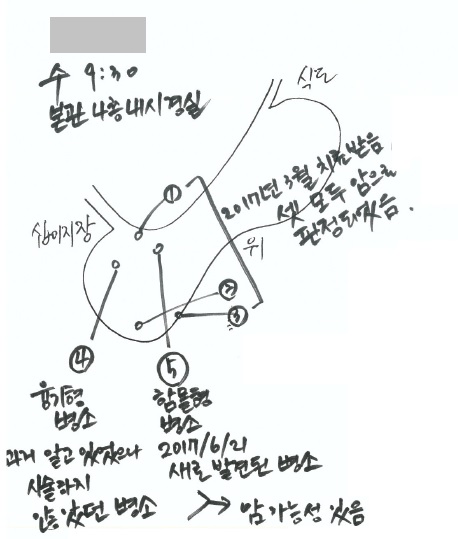 수 9:30
본관 4층 내시경실
식도
①
2017년 3월 치료받음
셋 모두 암으로
판정되었음.
십이지장
위
②
③
④
⑤
융기형
병소
과거 알고 있었으나
시술하지
않았던 병소
함몰형
병소
2017/6/21
새로 발견된 병소
→ 암 가능성 있음